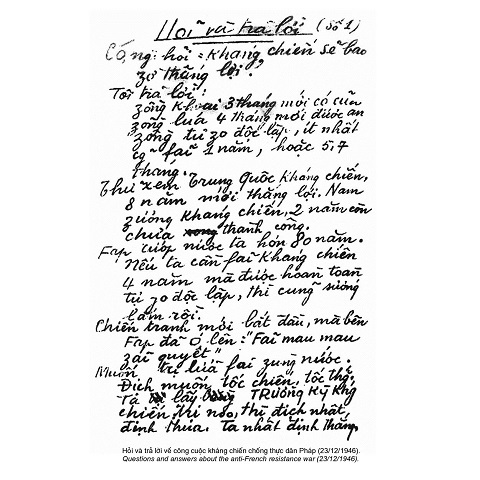 Hỏi và trả lời (Số 1)
Công hỏi: Kháng chiến sẽ bao
zờ thắng lợi?
Tôi trả lời:
zồng khoai 3 tháng mới có của
zồng lúa 4 tháng mới được ăn
zồng tự zo độc lập, ít nhất
cg fải 1 năm, hoặc 5, 7
tháng.
Thử xem Trung Quốc kháng chiến,
8 năm mới thắng lợi. Nam
zương kháng chiến, 2 năm còn
chưa thành công.
Fáp cướp nước ta hơn 80 năm.
Nếu ta cần fải kháng chiến
4 năm mà được hoàn toàn
tự zo độc lập, thì cũng sướng
lắm rồi.
Chiến tranh mới bắt đầu, mà bên
Fáp đã ó lên: "Fải mau mau
zải quyết"
Muốn tự lửa fải zụng nước.
Địch muốn tốc chiến, tốc thắng,
Ta lấy TRƯỜNG KỲ KHg
chiến trị nó, thì địch nhất
định thua. Ta nhất định thắng.
Hỏi và trả lời về công cuộc kháng chiến chống thực dân Pháp (23/12/1946).
Questions and answers about the anti-French resistance war (23/12/1946).